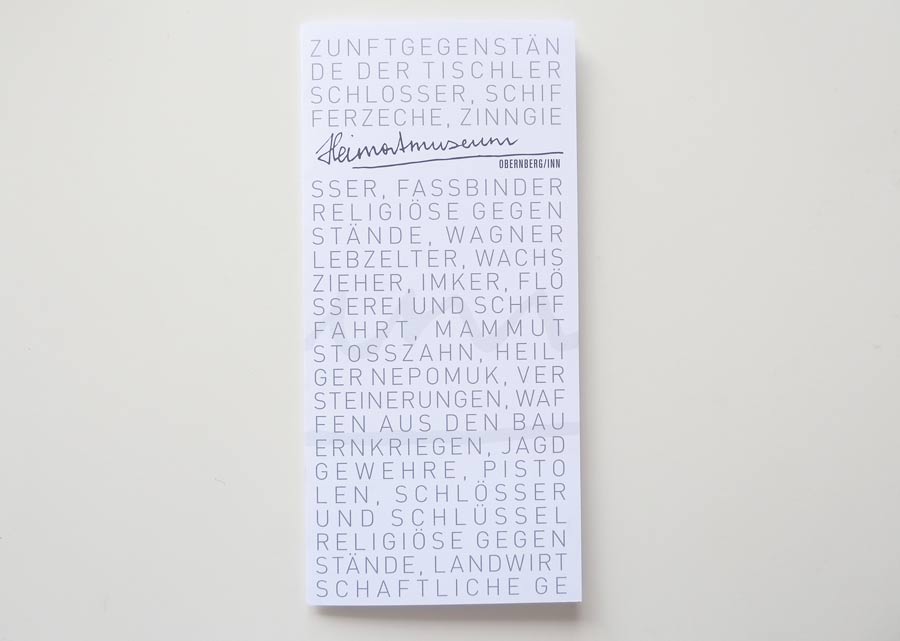 ZUNFTGEGENSTÄN
DE DER TISCHLER
SCHLOSSER, SCHIF
FERZECHE, ZINNGIE
Heimatmuseum
OBERNBERG/INN
SSER, FASSBINDER
RELIGIÖSE GEGEN
STÄNDE, WAGNER
LEBZELTER, WACHS
ZIEHER, IMKER, FLÖ
SSEREI UND SCHIFF
FAHRT, MAMMUT
STOSSZAHN, HEILI
GER NEPOMUK, VER
STEINERUNGEN, WAF
FEN AUS DEN BAU
ERNKRIEGEN, JAGD
GEWEHRE, PISTO
LEN, SCHLÖSSER
UND SCHLÜSSEL
RELIGIÖSE GEGEN
STÄNDE, LANDWIRT
SCHAFTLICHE GE